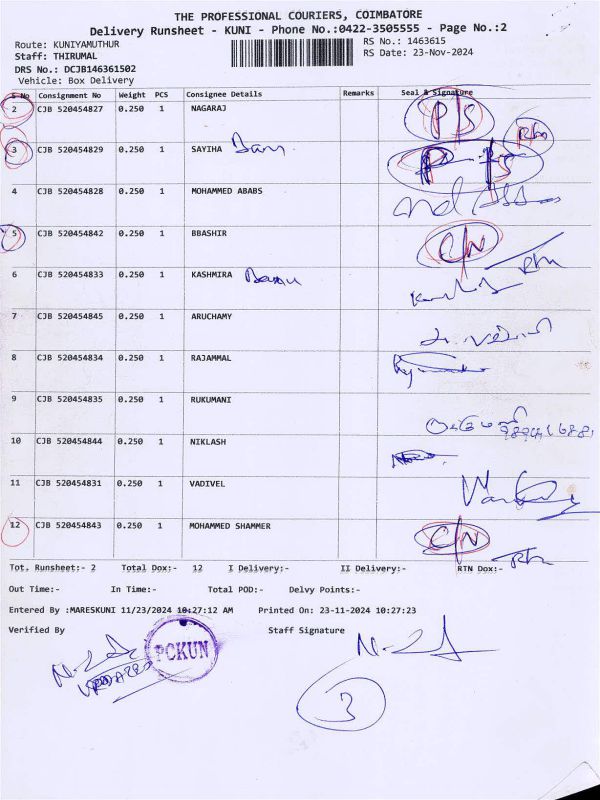 THE PROFESSIONAL COURIERS, COIMBATORE
Delivery Runsheet - KUNI - Phone No.:0422-3505555 - Page No.:2
Route: KUNIYAMUTHUR
RS No.: 1463615
Staff: THIRUMAL
RS Date: 23-Nov-2024
DRS No.: DCJB146361502
Vehicle: Box Delivery
S No Consignment No Weight PCS Consignee Details Remarks Seal & Signature
2 CJB 520454827 0.250 1 NAGARAJ P/S
Rtn
3 CJB 520454829 0.250 1 SAYIHA Banu P/S
4 CJB 520454828 0.250 1 MOHAMMED ABABS
5 CJB 520454842 0.250 1 BBASHIR C/N
Rtn
6 CJB 520454833 0.250 1 KASHMIRA Banu
7 CJB 520454845 0.250 1 ARUCHAMY
8 CJB 520454834 0.250 1 RAJAMMAL
9 CJB 520454835 0.250 1 RUKUMANI
10 CJB 520454844 0.250 1 NIKLASH
11 CJB 520454831 0.250 1 VADIVEL
12 CJB 520454843 0.250 1 MOHAMMED SHAMMER C/N
Rtn
Tot. Runsheet:- 2 Total Dox:- 12 I Delivery:- II Delivery:- RTN Dox:-
Out Time:- In Time:- Total POD:- Delvy Points:-
Entered By :MARESKUNI 11/23/2024 10:27:12 AM Printed On: 23-11-2024 10:27:23
Verified By Staff Signature
PCKUN
3